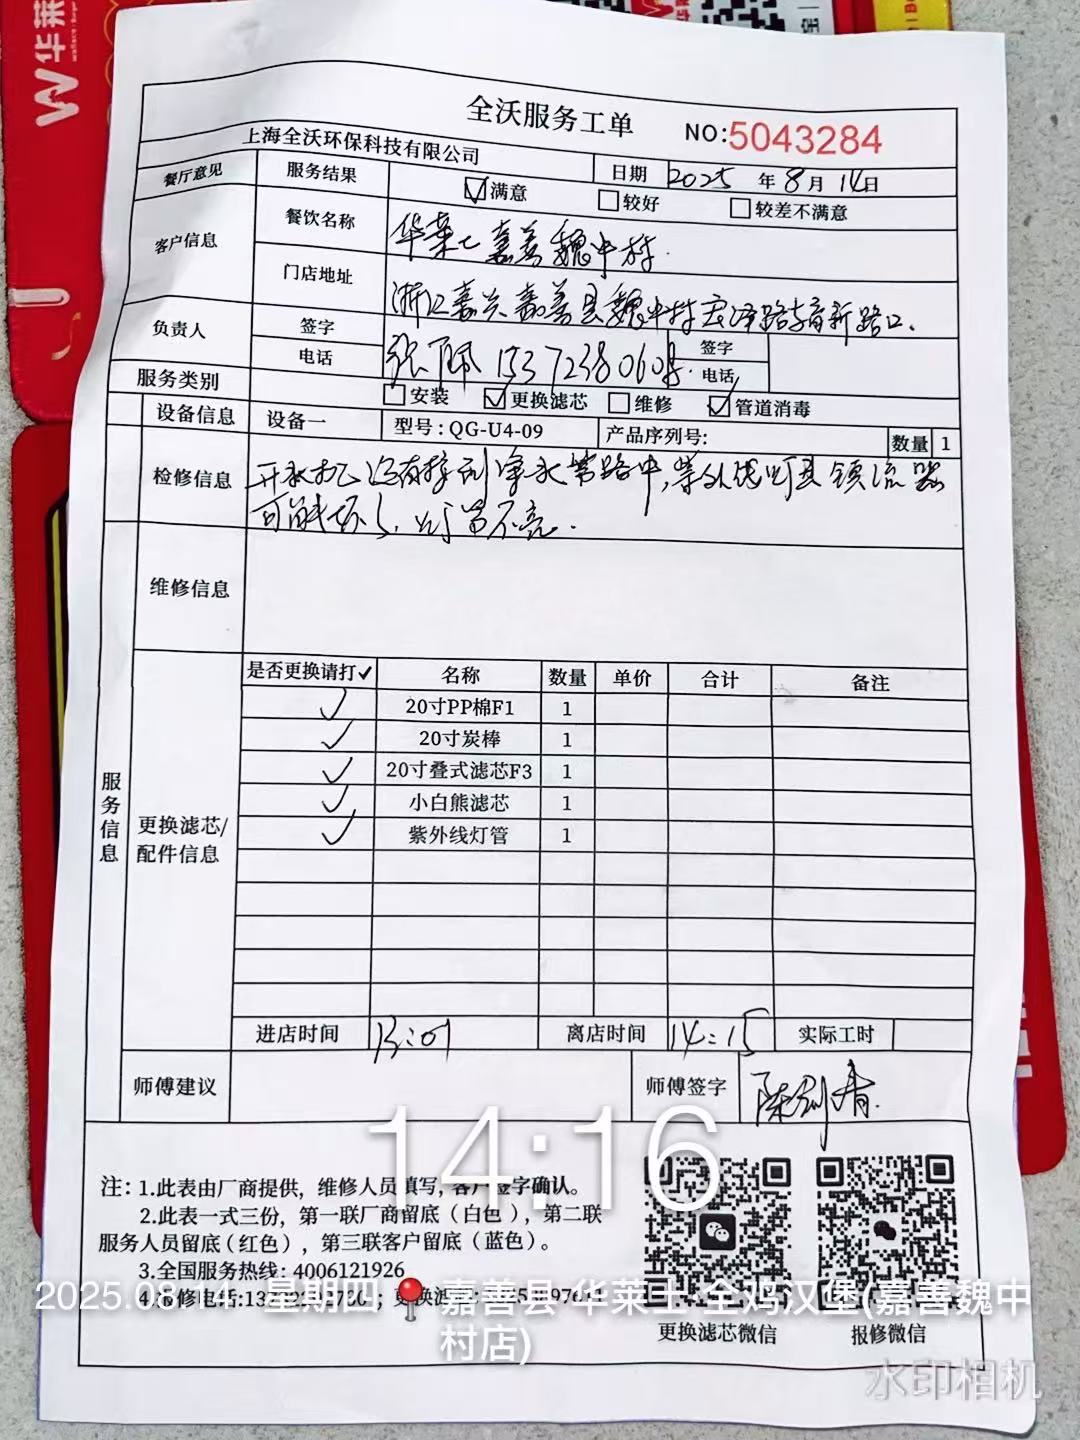 华莱
全沃服务工单
NO:5043284
上海全沃环保科技有限公司 日期 2025 年 8 月 14 日
餐厅意见 服务结果 ☑满意 ☐较好 ☐较差不满意
客户信息 餐饮名称 华莱士嘉善魏中村.
门店地址 浙江嘉兴嘉善县魏中村宏泽路育新路口.
负责人 签字 张丽 签字
电话 电话
服务类别 ☐安装 ☑更换滤芯 ☐维修 ☑管道消毒
设备信息 设备一 型号:QG-U4-09 产品序列号: 数量 1
检修信息 开水机没有接到净水管路中,紫外线灯具镇流器
可能坏了,灯管不亮.
维修信息
服务信息
更换滤芯/
配件信息
是否更换请打✓ 名称 数量 单价 合计 备注
✓ 20寸PP棉F1 1
✓ 20寸炭棒 1
✓ 20寸叠式滤芯F3 1
✓ 小白熊滤芯 1
✓ 紫外线灯管 1
进店时间 13:01 离店时间 14:15 实际工时
师傅建议 师傅签字
14:16
注: 1.此表由厂商提供，维修人员填写，客户签字确认。
2.此表一式三份，第一联厂商留底（白色），第二联
服务人员留底（红色），第三联客户留底（蓝色）。
3.全国服务热线: 4006121926
4.报修电话:
更换滤芯微信 报修微信
2025.08.14 星期四 嘉善县·华莱士·全鸡汉堡(嘉善魏中
村店)
水印相机